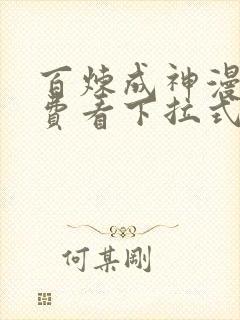 百炼成神漫
费看下拉式
何某刚